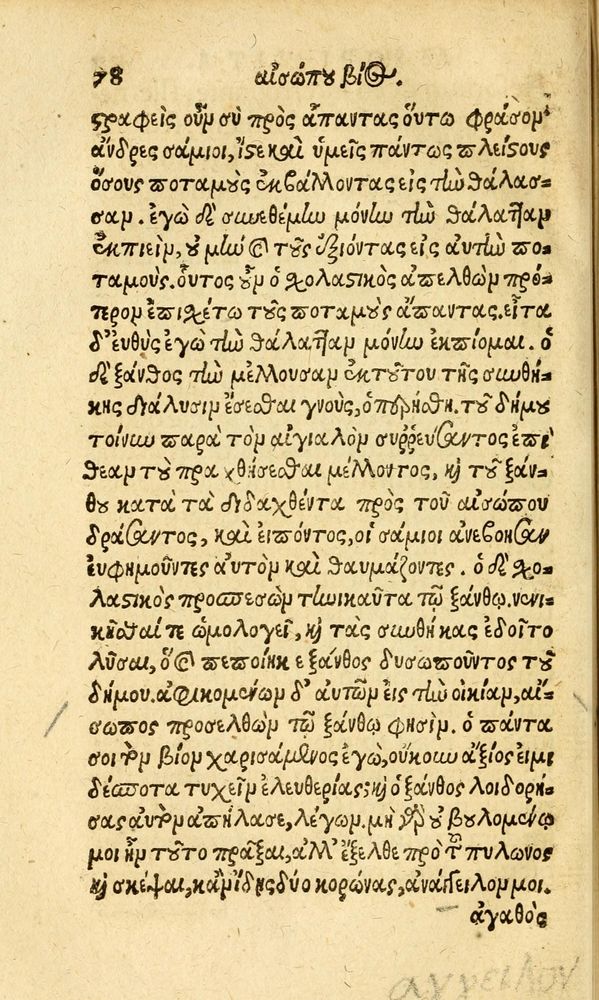 78 αἰσώπου βίος.
στραφεὶς οὖν σὺ πρὸς ἅπαντας οὕτω φράσον
ἄνδρες σάμιοι, ἴστε καὶ ὑμεῖς πάντως πλείστους
ὅσους ποταμοὺς ἐκβάλλοντας εἰς τὴν θάλασ-
σαν. ἐγὼ δὲ συνεθέμην μόνην τὴν θάλατταν
ἐκπιεῖν, οὐ μὴν καὶ τοὺς ἐξιόντας εἰς αὐτὴν πο-
ταμούς. οὗτος οὖν ὁ σχολαστικὸς ἀπελθὼν πρό-
τερον ἐπισχέτω τοὺς ποταμοὺς ἅπαντας. εἶτα
δ' εὐθὺς ἐγὼ τὴν θάλατταν μόνην ἐκπίομαι. ὁ
δὲ ξάνθος τὴν μέλλουσαν ἐκ τούτου τῆς συνθή-
κης διάλυσιν ἔσεσθαι γνοὺς, ὑπερήσθη. τοῦ δήμου
τοίνυν παρὰ τὸν αἰγιαλὸν συρρεύσαντος ἐπὶ
θέαν τοῦ πραχθήσεσθαι μέλλοντος, καὶ τοῦ ξάν-
θου κατὰ τὰ διδαχθέντα πρὸς τοῦ αἰσώπου
δράσαντος, καὶ εἰπόντος, οἱ σάμιοι ἀνεβόησαν
εὐφημοῦντες αὐτὸν καὶ θαυμάζοντες. ὁ δὲ σχο-
λαστικὸς προσπεσὼν τηνικαῦτα τῷ ξάνθῳ, νενι-
κῆσθαί τε ὡμολογεῖ, καὶ τὰς συνθήκας ἐδεῖτο
λῦσαι, ὃ καὶ πεποίηκε ξάνθος δυσωποῦντος τοῦ
δήμου. ἀφικομένων δ' αὐτῶν εἰς τὴν οἰκίαν, αἴ-
σωπος προσελθὼν τῷ ξάνθῳ φησίν. ὁ πάντα
σοι τὸν βίον χαρισάμενος ἐγὼ, οὔκουν ἄξιός εἰμι
δέσποτα τυχεῖν ἐλευθερίας; καὶ ὁ ξάνθος λοιδορή-
σας αὐτὸν ἀπήλασε, λέγων. μὴ γὰρ οὐ βουλομένῳ
μοι ἦν τοῦτο πρᾶξαι, ἀλλ' ἔξελθε πρὸ τοῦ πυλῶνος
καὶ σκέψαι, κἂν ἴδῃς δύο κορώνας, ἀνάγγειλόν μοι.
ἀγαθὸς